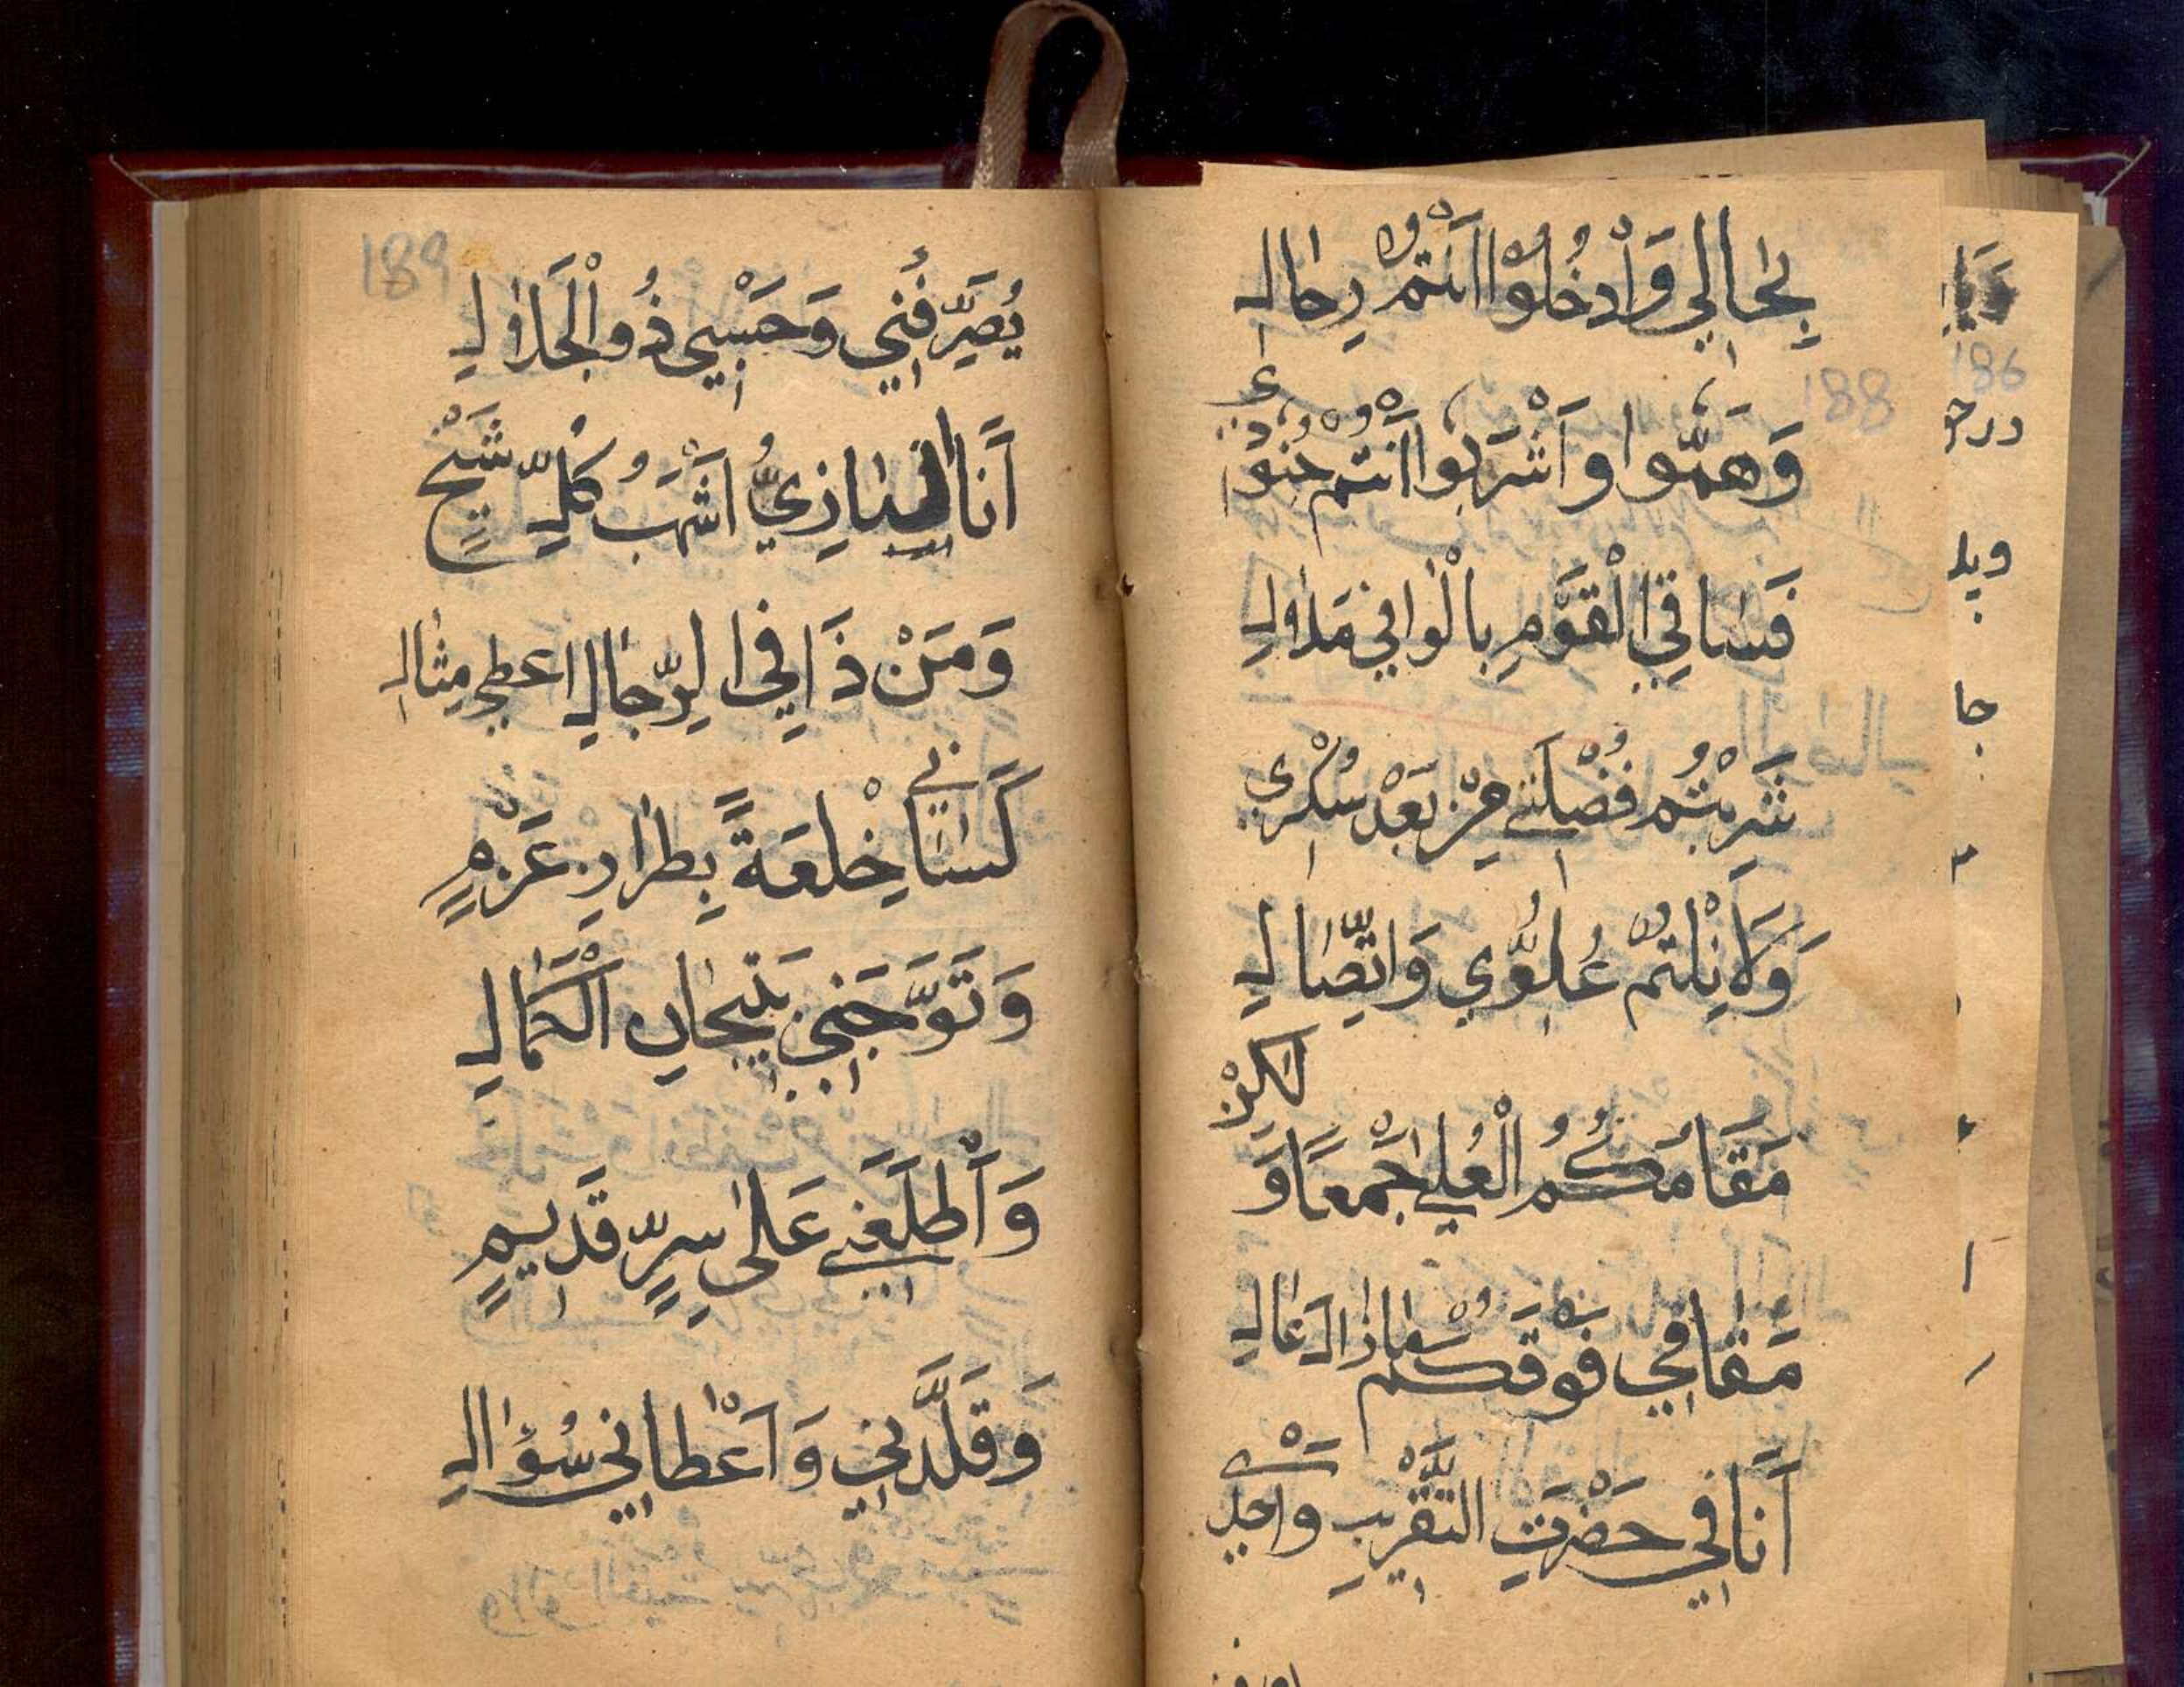 بِحَالِي وَادْخُلُوْا اَنْتُمْ رِجَالِ
188
وَهَمُّوا وَاشْرَبُوا اَنْتُمْ جُنُوْدِي
فَسَاقِي الْقَوْمِ بِالْوَافِي مَلَالِ
شَرِبْتُمْ فُضْلَتِي مِنْ بَعْدِ سُكْرِي
وَلَا نِلْتُمْ عُلُوِّي وَاتِّصَالِ
مَقَامُكُمُ الْعُلٰى جَمْعًا وَلٰكِنْ
مَقَامِي فَوْقَكُمْ مَازَالَ عَالِ
اَنَا فِي حَضْرَتِ التَّقْرِيْبِ وَحْدِي
186
درج
ويل
جا
189
يُصَرِّفُنِي وَحَسْبِي ذُو الْجَلَالِ
اَنَا الْبَازِيُّ اَشْهَبُ كُلِّ شَيْخٍ
وَمَنْ ذَا فِي الرِّجَالِ اعطي مِثَالِ
كَسَانِي خِلْعَةً بِطَرَازِ عَزْمٍ
وَتَوَّجَنِي بِتِيْجَانِ الْكَمَالِ
وَاَطْلَعَنِي عَلٰى سِرٍّ قَدِيْمٍ
وَقَلَّدَنِي وَاَعْطَانِي سُؤَالِ